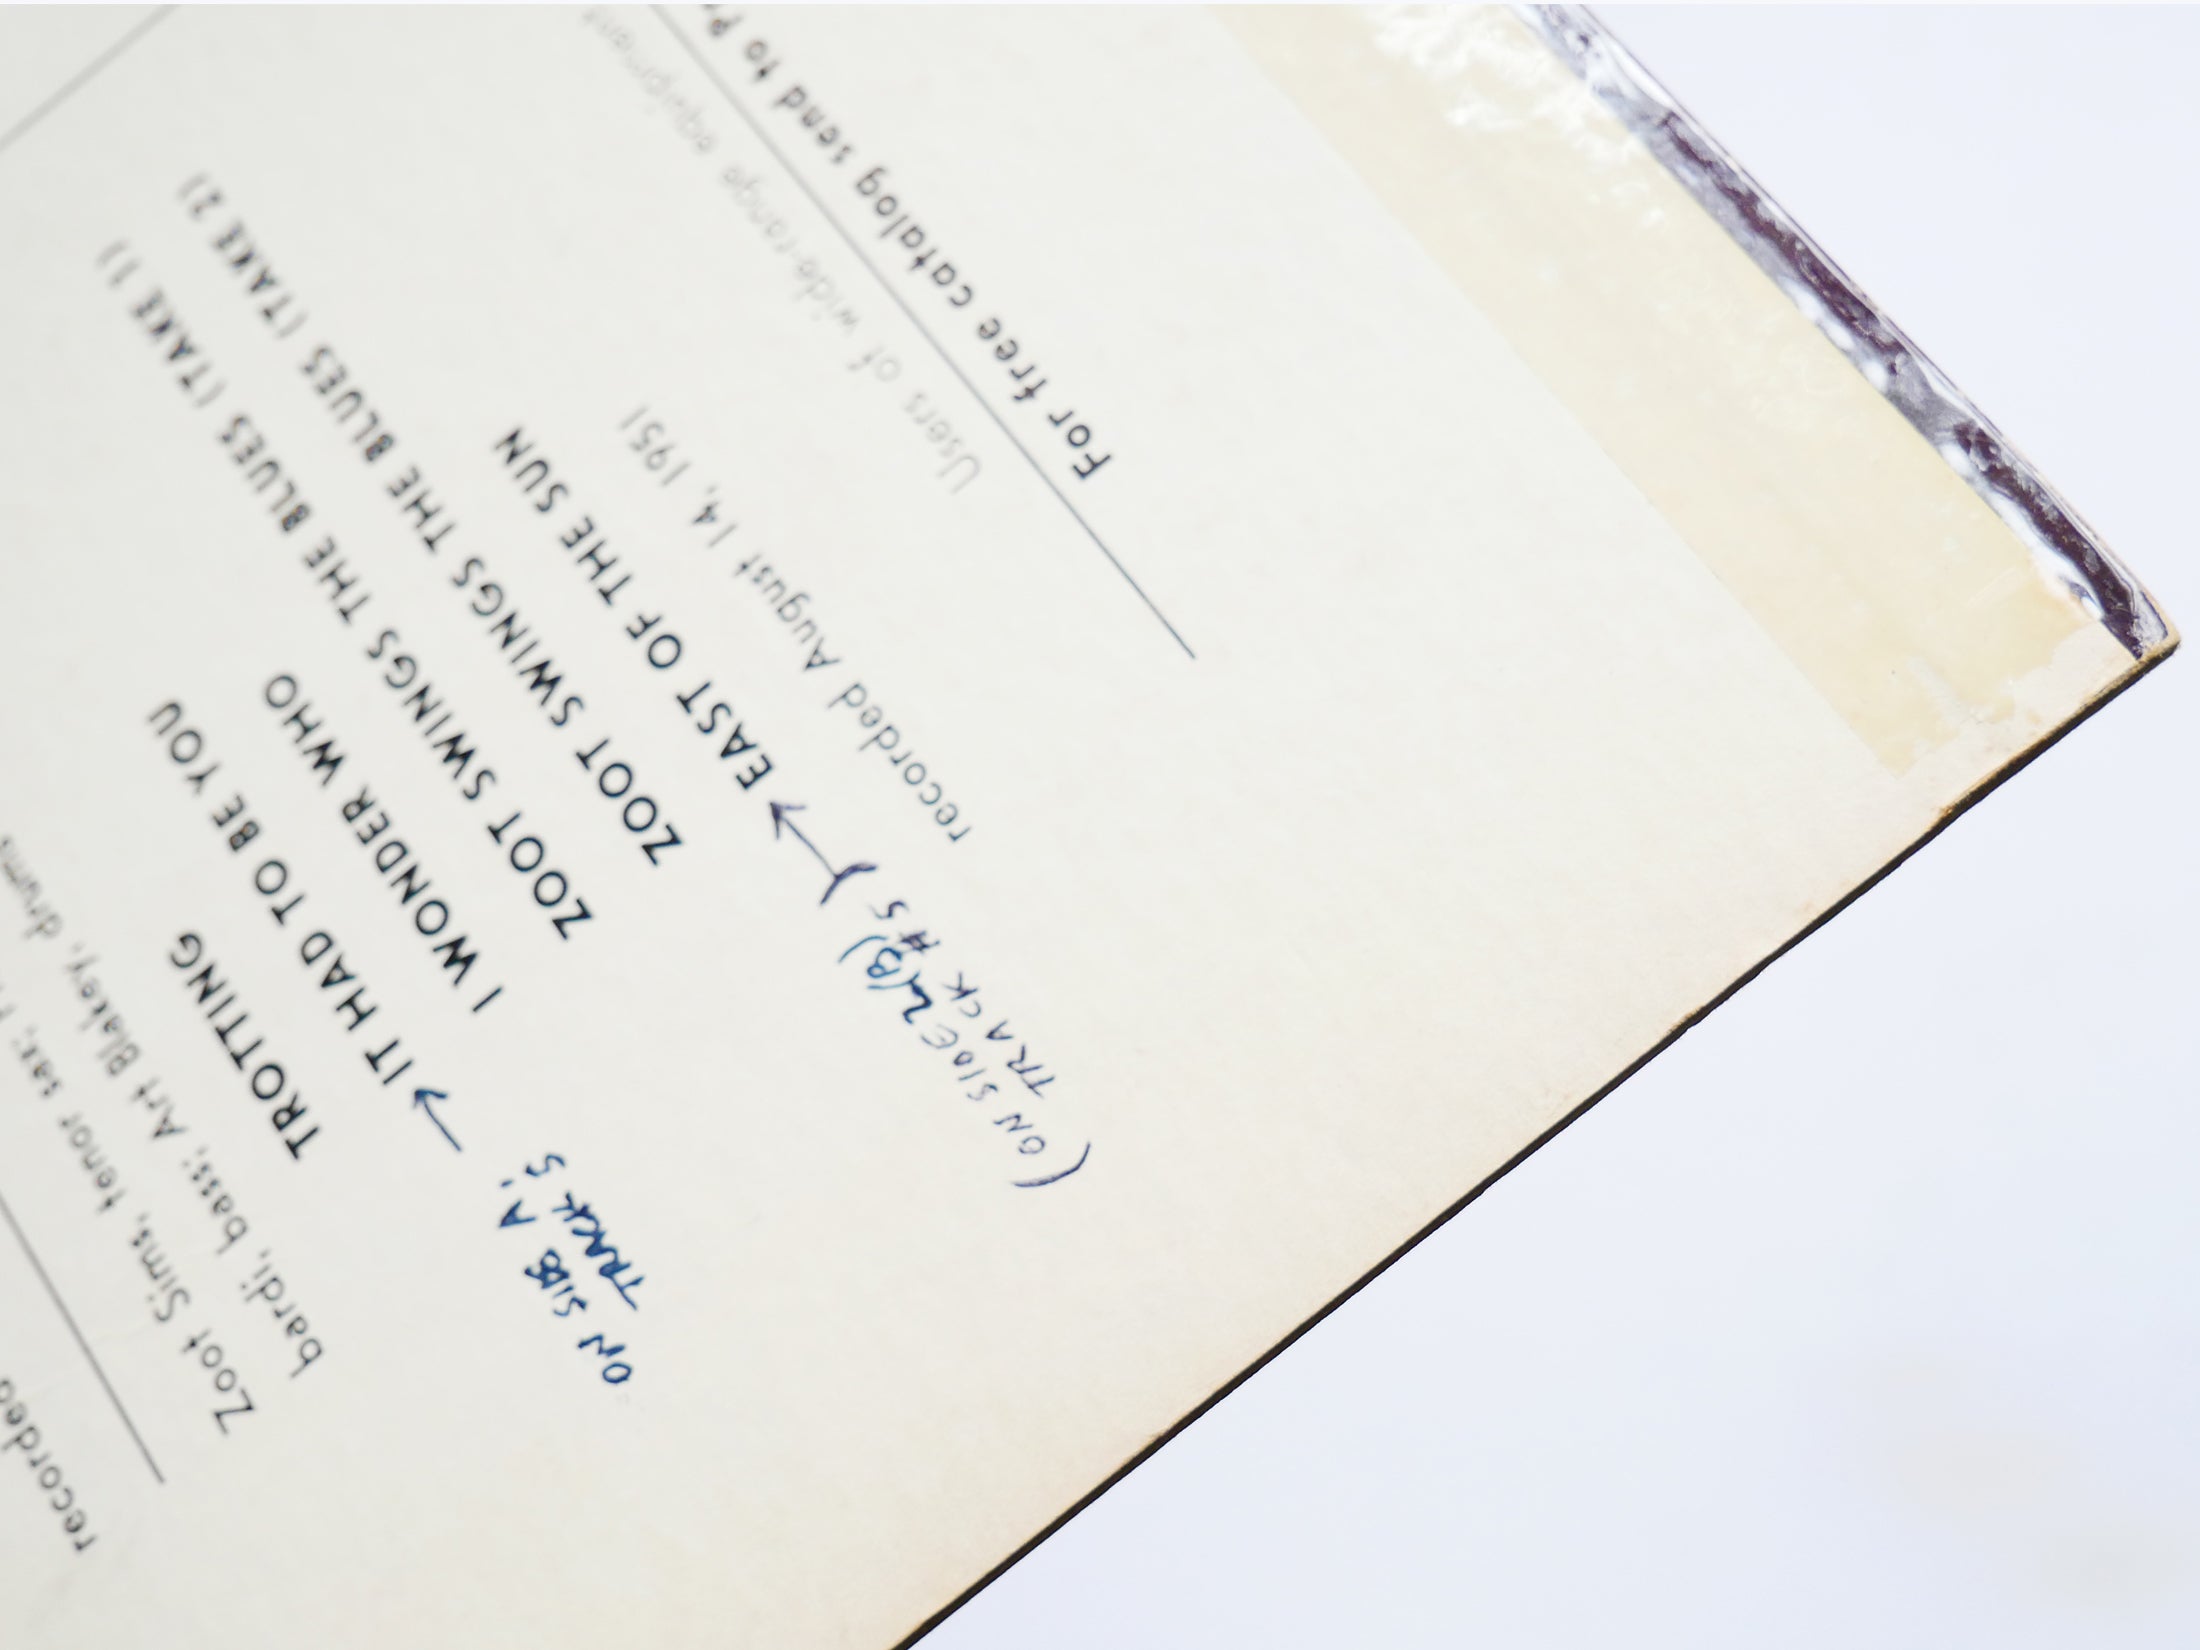 recorded
Zoot Sims, tenor sax;
bardi, bass; Art Blakey, drums
TROTTING
→ IT HAD TO BE YOU
ON SIDE A:
TRACK 5
I WONDER WHO
ZOOT SWINGS THE BLUES (TAKE 1)
ZOOT SWINGS THE BLUES (TAKE 2)
→ EAST OF THE SUN
(ON SIDE 2(B)
TRACK #5)
recorded August 14, 1951
Users of wide-range equipment
For free catalog send to